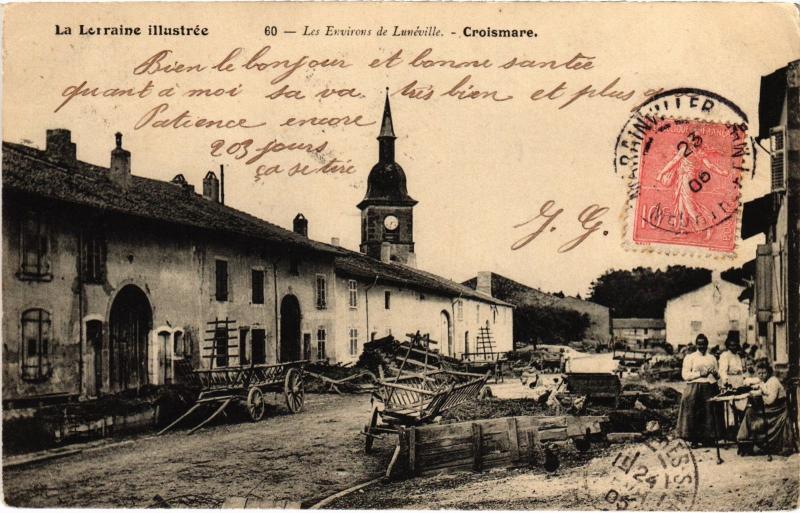 La Lorraine illustrée
60 — Les Environs de Lunéville. - Croismare.
Bien le bonjour et bonne santée
quant à moi sa va très bien et plus
Patience encore
203 jours
ça se tire
J. G.
MARAINVILLER
23
06
24